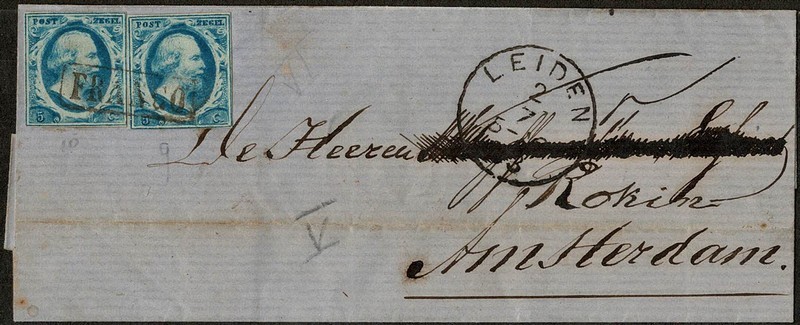 POST ZEGEL POST ZEGEL
FRANCO
5 C. 5 C.
LEIDEN
2
7
De Heeren
Rokin
Amsterdam.
10
9
V